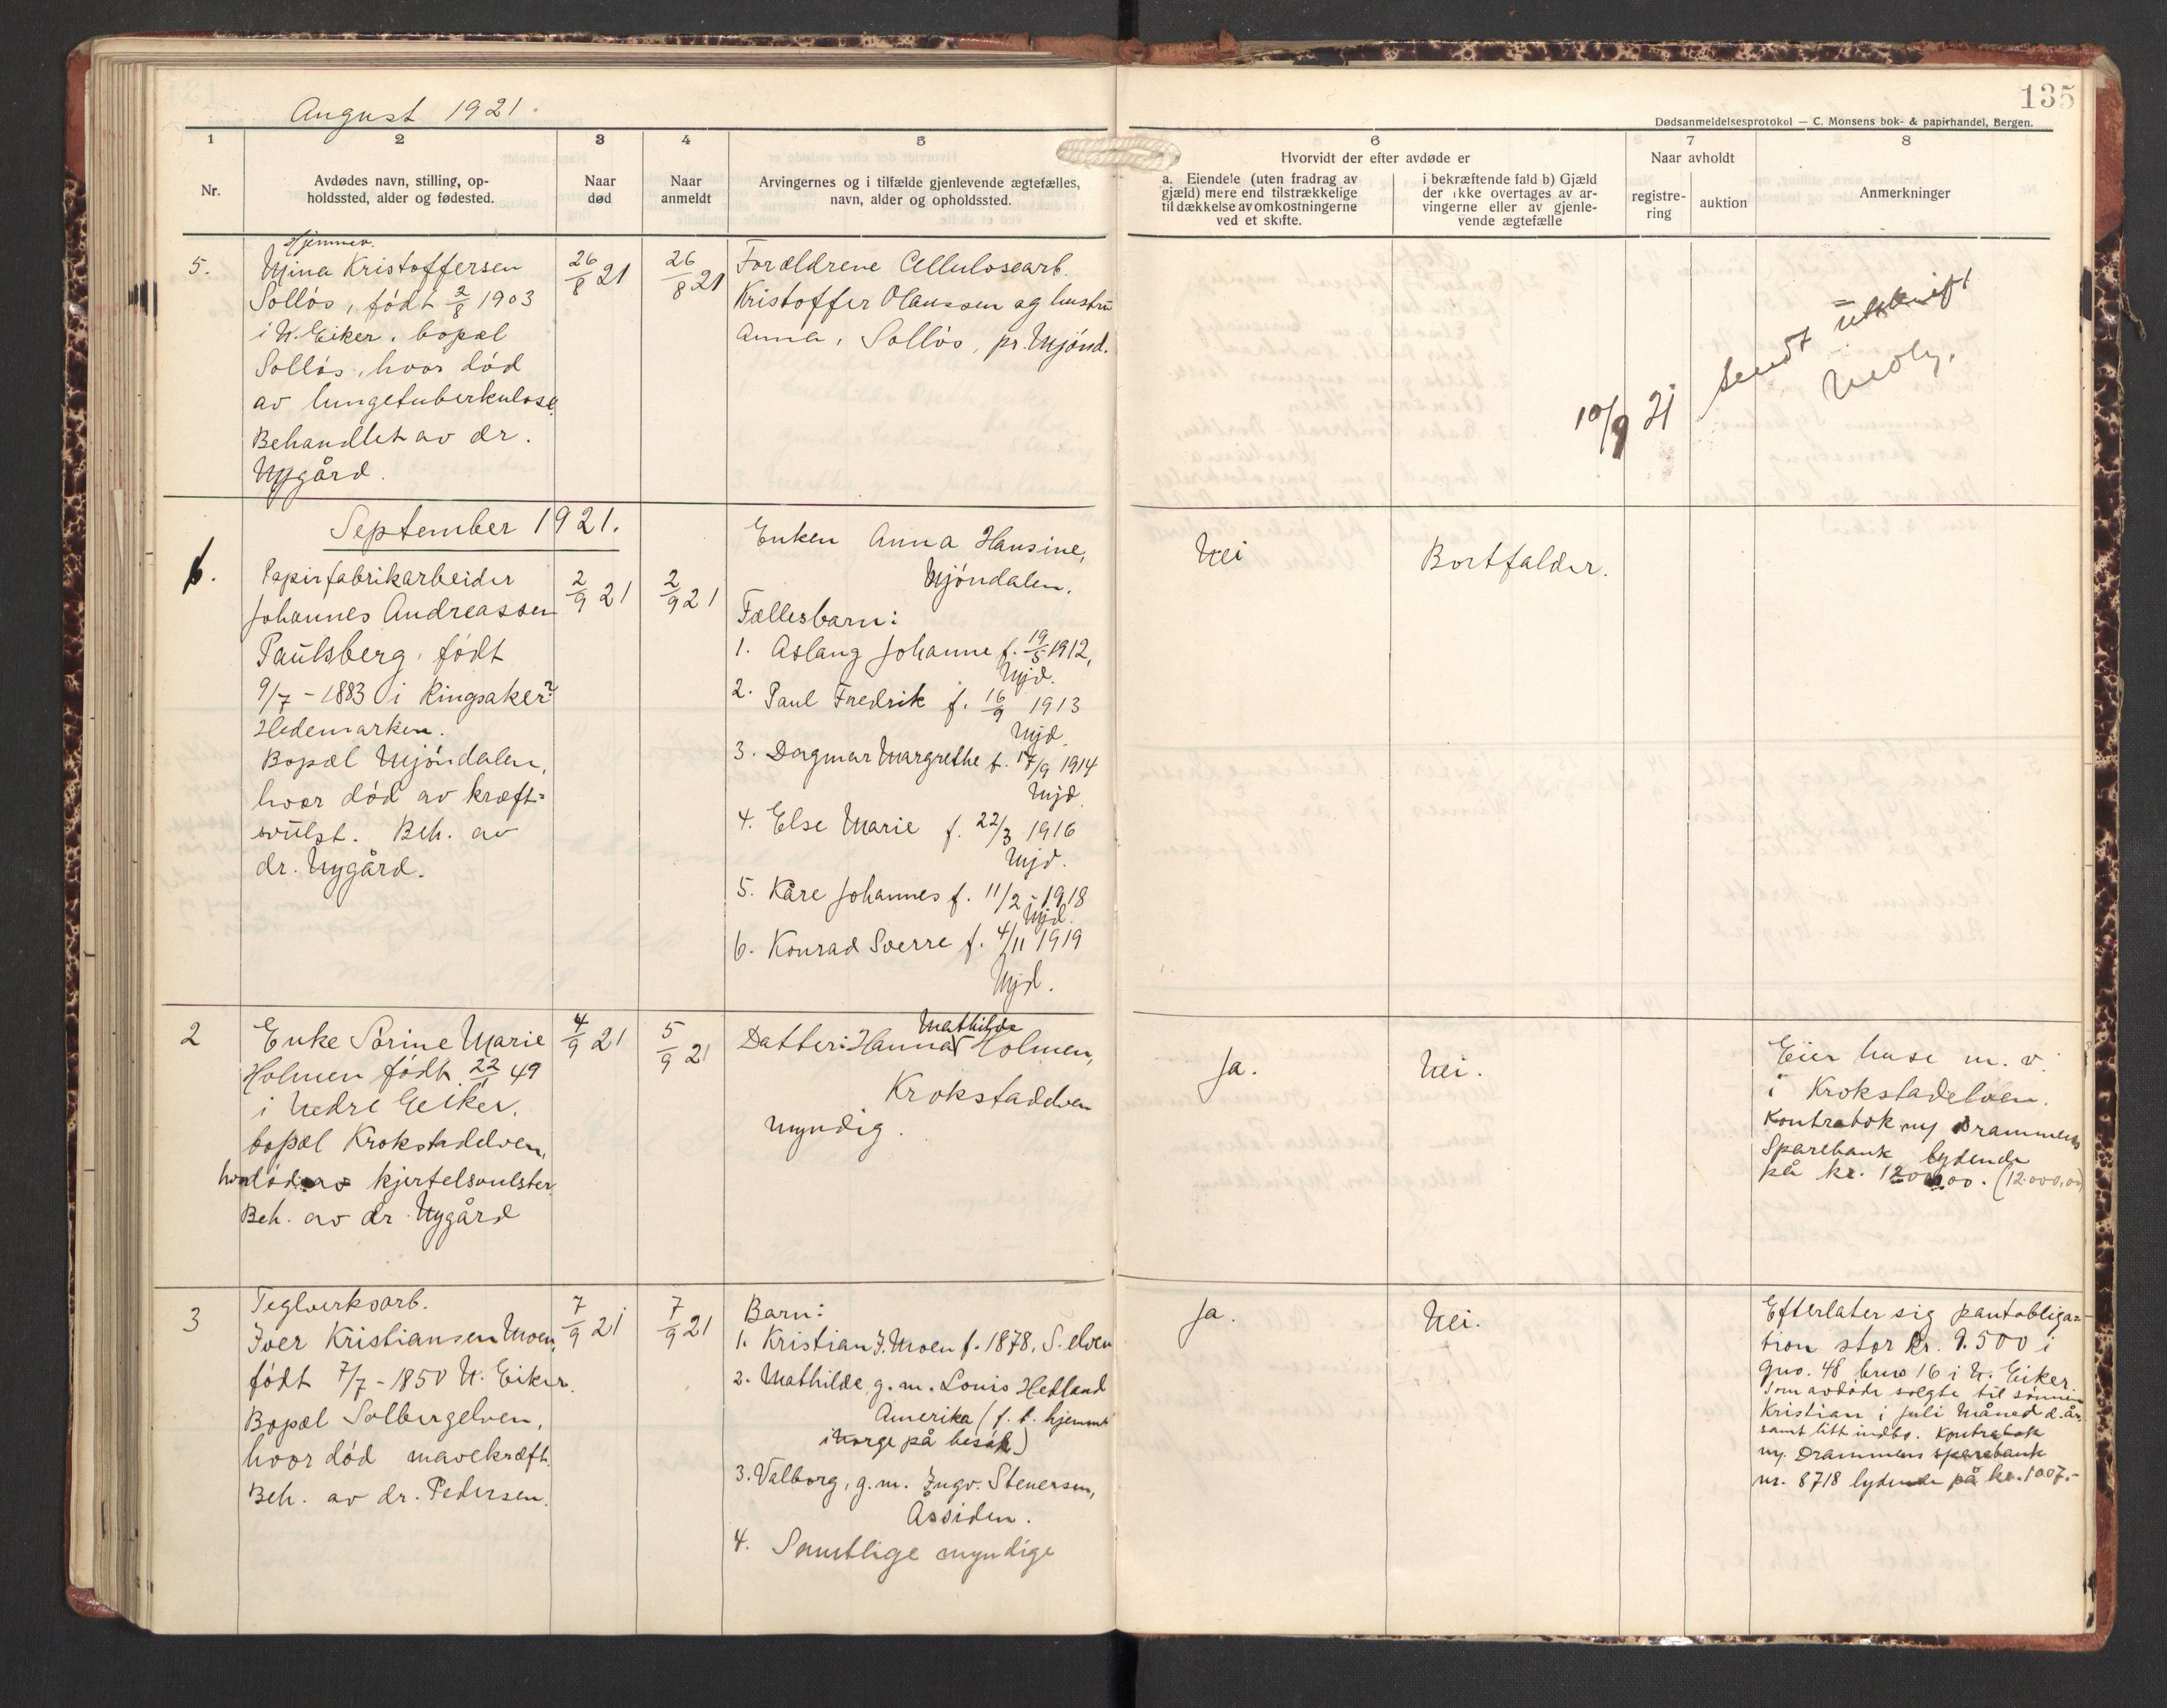 August 1921.
135
Dødsanmeldelsesprotokol — C. Monsens bok- & papirhandel, Bergen.
1
2
3
4
5
6
7
8
Nr.
Avdødes navn, stilling, op-
holdssted, alder og fødested.
Naar
død
Naar
anmeldt
Arvingernes og i tilfælde gjenlevende ægtefælles,
navn, alder og opholdssted.
Hvorvidt der efter avdøde er
a. Eiendele (uten fradrag av
gjæld) mere end tilstrækkelige
til dækkelse av omkostningerne
ved et skifte.
i bekræftende fald b) Gjæld
der ikke overtages av ar-
vingerne eller av gjenle-
vende ægtefælle
Naar avholdt
registre-
ring
auktion
Anmerkninger
5.
Hjemmev.
Mina Kristoffersen
Solløs, født 2/8 1903
i N. Eiker. bopæl
Solløs, hvor død
av lungetuberkulose.
Behandlet av dr.
Nygård.
26/8 21
26/8 21
Forældrene Cellulosearb.
Kristoffer Olaussen og hustru
Anna, Solløs, pr. Mjønd.
10/9 21 sendt utskrift
September 1921.
1.
Papirfabrikarbeider
Johannes Andreassen
Paulsberg, født
9/7 - 1883 i Ringsaker?
Hedemarken.
Bopæl Mjøndalen,
hvor død av kræft=
svulst. Beh. av
dr. Nygård.
2/9 21
2/9 21
Enken Anna Hansine,
Mjøndalen.
Fællesbarn:
1. Aslaug Johanne f. 19/5 1912,
Mjd.
2. Paul Fredrik f. 16/9 1913
Mjd.
3. Dagmar Margrethe f. 17/9 1914
Mjd.
4. Else Marie f. 22/3 1916
Mjd.
5. Kåre Johannes f. 11/2 - 1918
Mjd.
6. Konrad Sverre f. 4/11 1919
Mjd.
Nei
Bortfalder.
2
Enke Sørine Marie
Holmen født 22/1 49
i Nedre Eeiker.
bopæl Krokstadelven,
hvor død av kjertelsvulster
Beh. av dr. Nygård
4/9 21
5/9 21
Datter: Hanna Mathilde Holmen,
Krokstadelven
myndig.
Ja.
Nei.
Eier huse m. v.
i Krokstadelven.
Kontrabok m/ Drammens
Sparebank lydende
på kr. 12000,00. (12.000,00)
3
Teglverksarb.
Iver Kristiansen Moen,
født 7/7 - 1850 N. Eiker.
Bopæl Solbergelven,
hvor død mavekræft.
Beh. av dr. Pedersen.
7/9 21
7/9 21
Barn:
1. Kristian I. Moen f. 1878, S. elven
2. Mathilde g. m. Louis Hetland
Amerika (f. t. hjemme
i Norge på besøk)
3. Valborg, g. m. Ingv. Stenersen,
Åssiden.
4. Samtlige myndige
Ja.
Nei.
Efterlater sig pantobliga-
tion stor kr. 9.500 i
gno. 48 brno 16 i N. Eiker.
Som avdøde solgte til sønnen
Kristian i juli måned d. år.
samt litt indbo. Kontrabok
m/ Drammens sparebank
nr. 8718 lydende på kr. 1007.-